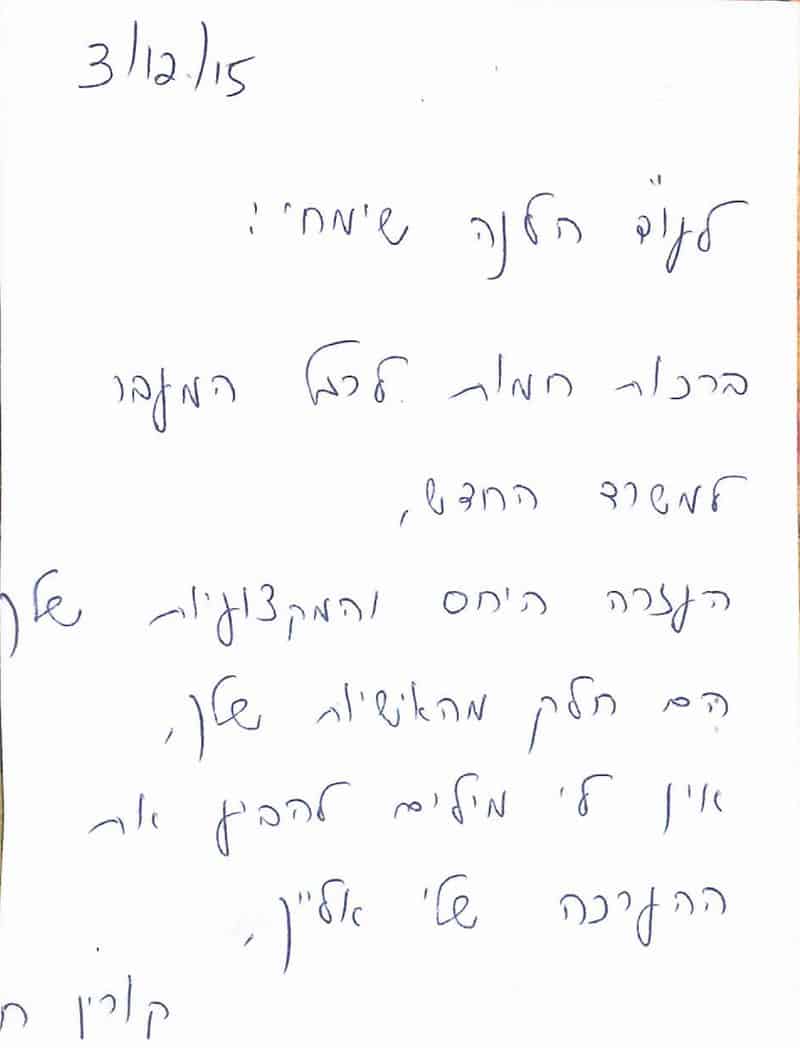 3/12/15
לעו"ד הלנה שימחי:
ברכות חמות לרגל המעבר
למשרד החדש,
העזרה היחס והמקצועיות שלך
הם חלק מהאישיות שלך,
אין לי מילים להביע את
ההערכה שלי אלייך,
קורין ח